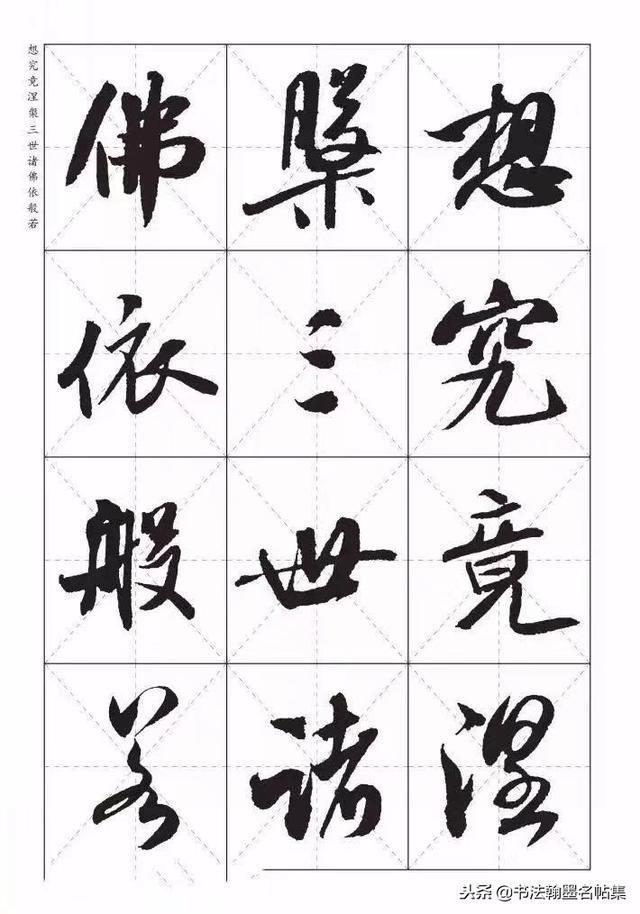 想究竟涅槃三世诸佛依般若
想究竟涅
槃三世诸
佛依般若
头条@书法翰墨名帖集